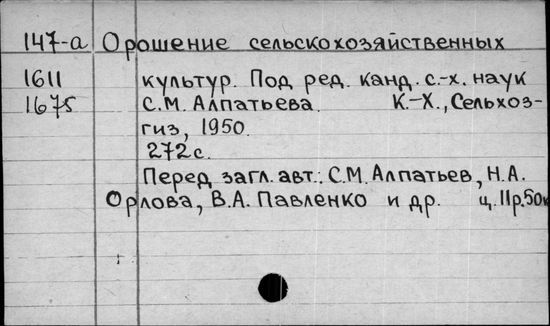 147-а Орошение сельскохозяйственных
1611 культур. Под ред. канд. с.-х. наук
1675 С.М. Алпатьева. К.-Х., Сельхоз-
гиз, 1950.
272 с.
Перед загл. авт.: С.М. Алпатьев, Н.А.
Орлова, В.А. Павленко и др. ц. 11р.50к